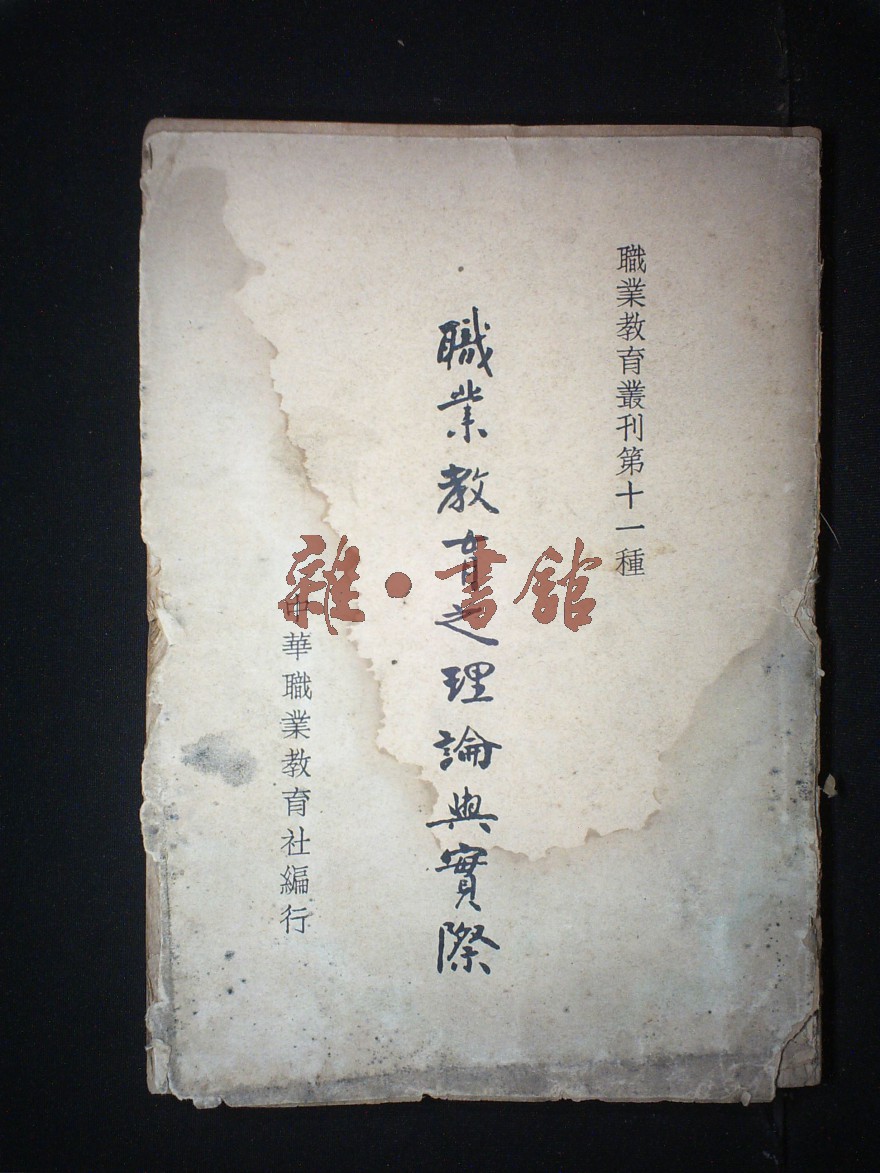 職業教育叢刊第十一種
職業教育之理論與實際
中華職業教育社編行
雜·書館